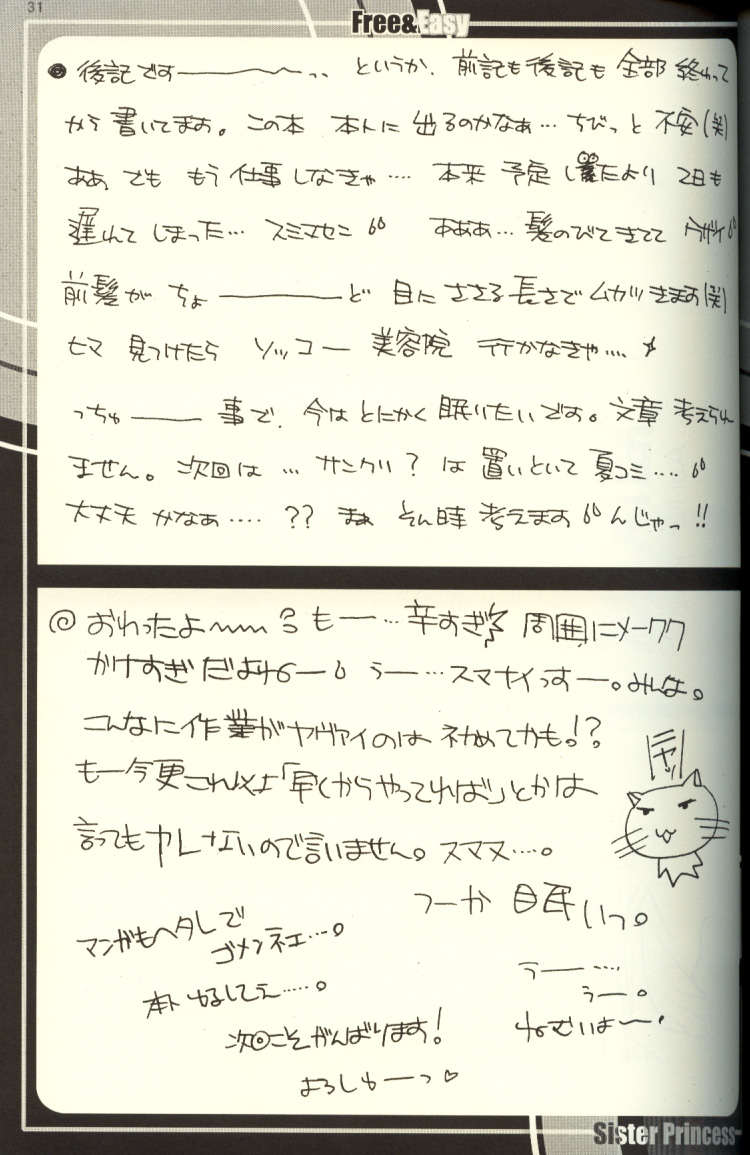 31
Free&Easy
後記です―――〜〜.. というか、前記も後記も全部終わって
から書いてます。この本 本トに出るのかなぁ… ちびっと不安(笑)
ああ でも もう仕事しなきゃ…. 本来 予定してたより 2日も
遅れてしまった… スミマセン あああ… 髪のびてきてて ウザイ
前髪が ちょ――――ど 目にささる長さで ムカツキます(笑)
ヒマ 見つけたら ソッコー 美容院 行かなきゃ….
っちゅ――― 事で、今はとにかく眠りたいです。文章 考えられ
ません。次回は … サンクリ? は 置いといて 夏コミ….
大丈夫かなぁ….. ?? まぁ そん時 考えます んじゃっ!!
おわったよ〜〜 も―…辛すぎ 周囲にメーワク
かけすぎだよオレ― うー…スマナイっすー。みんな。
こんなに作業がヤヴァイのは初めてかも!?
もー今更これ以上「早くからやってれば」とかは
言ってもヤレないので言いません。スマヌ….。
ニャッ
つーか 眠いっ。
マンガもヘタレで
ゴメンネェ….。
本ト ゆるしてぇ…..。
次回こそがんばります!
よろしゅーっ♡
うー― ….
うー。
ねむいよ〜
Sister Princess